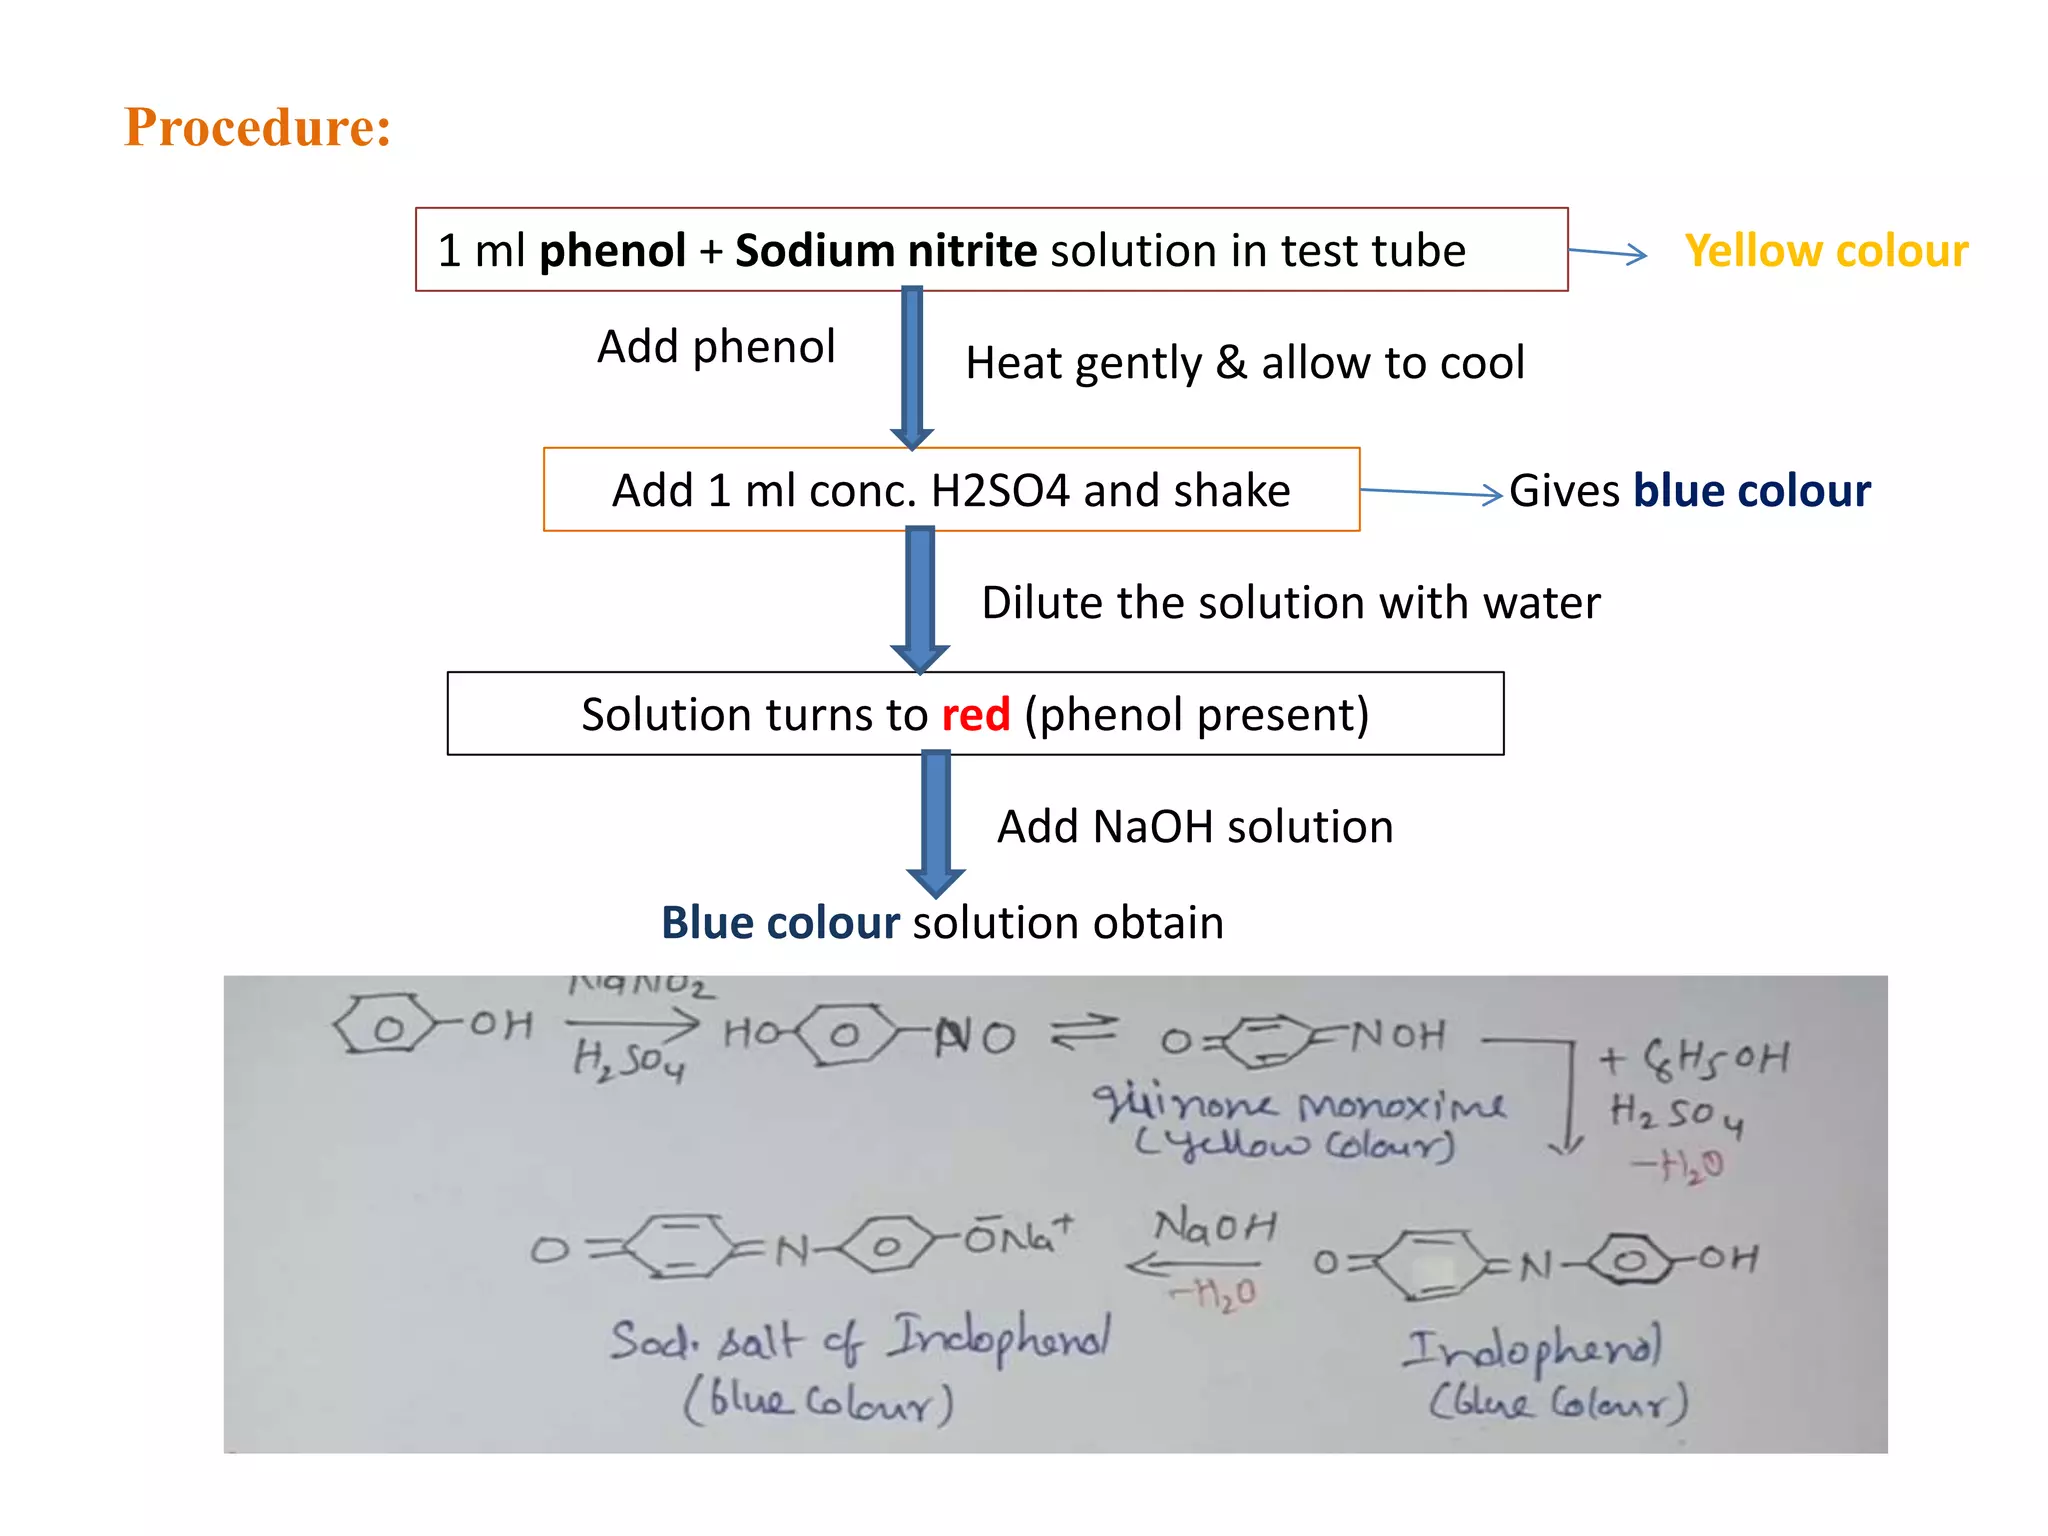 Procedure:
1 ml phenol + Sodium nitrite solution in test tube
Yellow colour
Add phenol
Heat gently & allow to cool
Add 1 ml conc. H2SO4 and shake
Gives blue colour
Dilute the solution with water
Solution turns to red (phenol present)
Add NaOH solution
Blue colour solution obtain
NaNO2
OH
H2SO4
HO
NO
⇌
O
NOH
+ C6H5OH
H2SO4
-H2O
quinone monoxime
(yellow colour)
O
N
ŌNa+
NaOH
-H2O
O
N
OH
Sod. salt of Indophenol
(blue colour)
Indophenol
(blue colour)